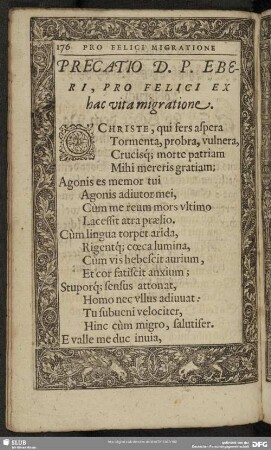 176 PRO FELICI MIGRATIONE
PRECATIO D. P. EBE-
RI, PRO FELICI EX
hac vita migratione.
O CHRISTE, qui fers aspera
Tormenta, probra, vulnera,
Crucisq; morte patriam
Mihi mereris gratiam;
Agonis es memor tui
Agonis adiutor mei,
Cùm me reum mors vltimo
Lacessit atra prælio.
Cùm lingua torpet arida,
Rigentq; cœca lumina,
Cum vis hebescit aurium,
Et cor fatiscit anxium;
Stuporq; sensus attonat,
Homo nec vllus adiuuat:
Tu subueni velociter,
Hinc cùm migro, salutifer.
E valle me duc inuia,
SLUB